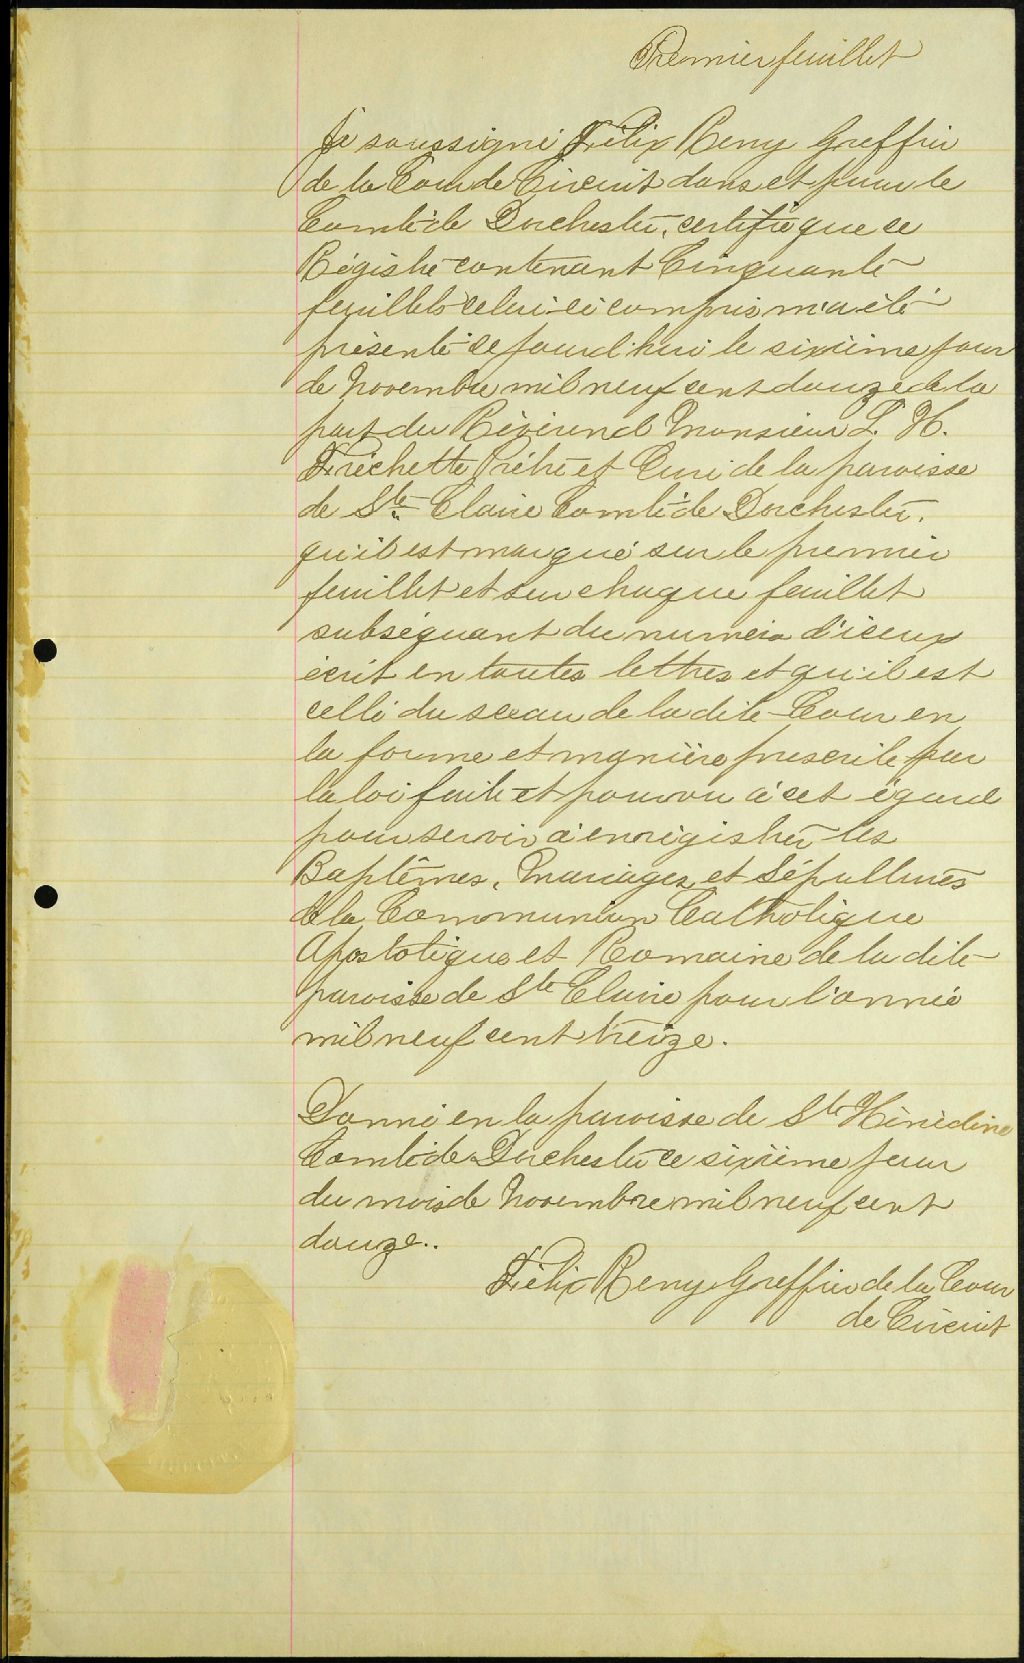 Premier feuillet
Je soussigné Félix Remy Greffier
de la Cour de Circuit dans et pour le
Comté de Dorchester, certifie que ce
Régistre contenant Cinquante
feuillets celui-ci compris m'a été
présenté ce jourd'hui le sixième jour
de Novembre mil neuf cent douze de la
part du Révérend Monsieur L. H.
Fréchette Prêtre et Curé de la paroisse
de Ste Claire Comté de Dorchester.
qu'il est marqué sur le premier
feuillet et sur chaque feuillet
subséquant du numéro d'iceux
écrit en toutes lettres et qu'il est
cellé du sceau de la dite Cour en
la forme et manière prescrite par
la loi faite et pourvu à cet égard
pour servir à enrégistrer les
Baptêmes, Mariages et Sépultures
de la Communion Catholique
Apostolique et Romaine de la dite
paroisse de Ste Claire pour l'année
mil neuf cent treize.
Donné en la paroisse de Ste Hénédine
Comté de Dorchester ce sixième jour
du mois de Novembre mil neuf cent
douze..
Félix Remy Greffier de la Cour
de Circuit